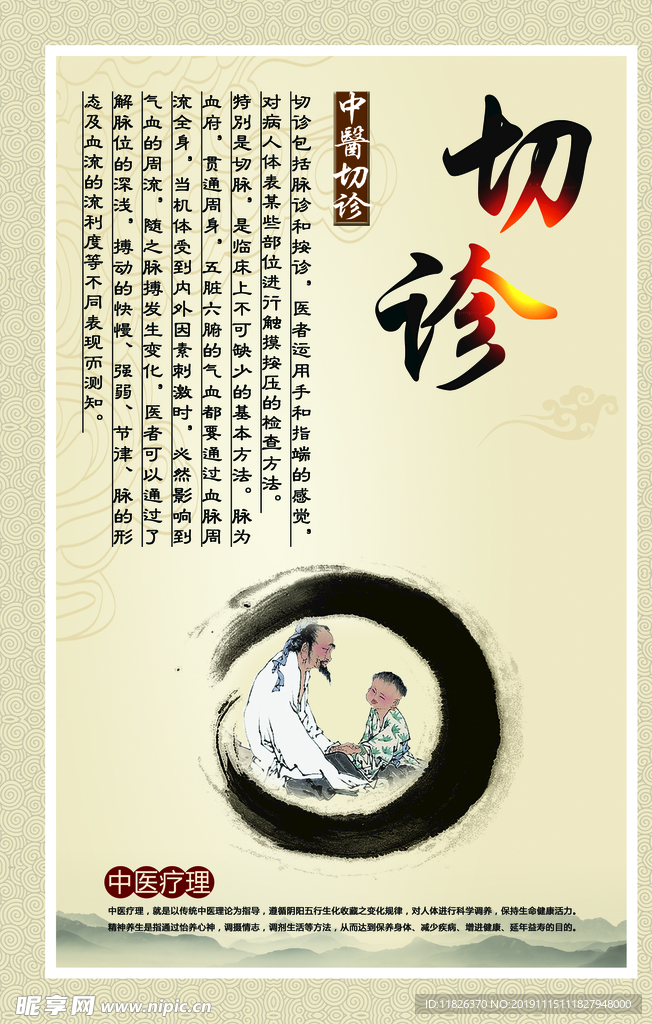 切诊
中醫切诊
切诊包括脉诊和按诊，医者运用手和指端的感觉，
对病人体表某些部位进行触摸按压的检查方法。
特别是切脉，是临床上不可缺少的基本方法。脉为
血府，贯通周身，五脏六腑的气血都要通过血脉周
流全身，当机体受到内外因素刺激时，必然影响到
气血的周流，随之脉搏发生变化，医者可以通过了
解脉位的深浅，搏动的快慢、强弱、节律、脉的形
态及血流的流利度等不同表现而测知。
中医疗理
中医疗理，就是以传统中医理论为指导，遵循阴阳五行生化收藏之变化规律，对人体进行科学调养，保持生命健康活力。
精神养生是指通过怡养心神，调摄情志，调剂生活等方法，从而达到保养身体、减少疾病、增进健康、延年益寿的目的。
昵享网 www.nipic.cn
ID:11826370 NO:20191115111827948000